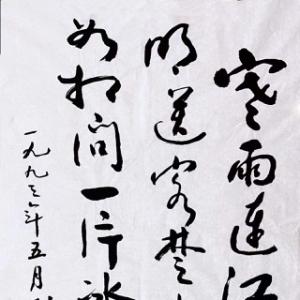 寒雨連江
明送客楚
如相問一片冰
一九九三年五月